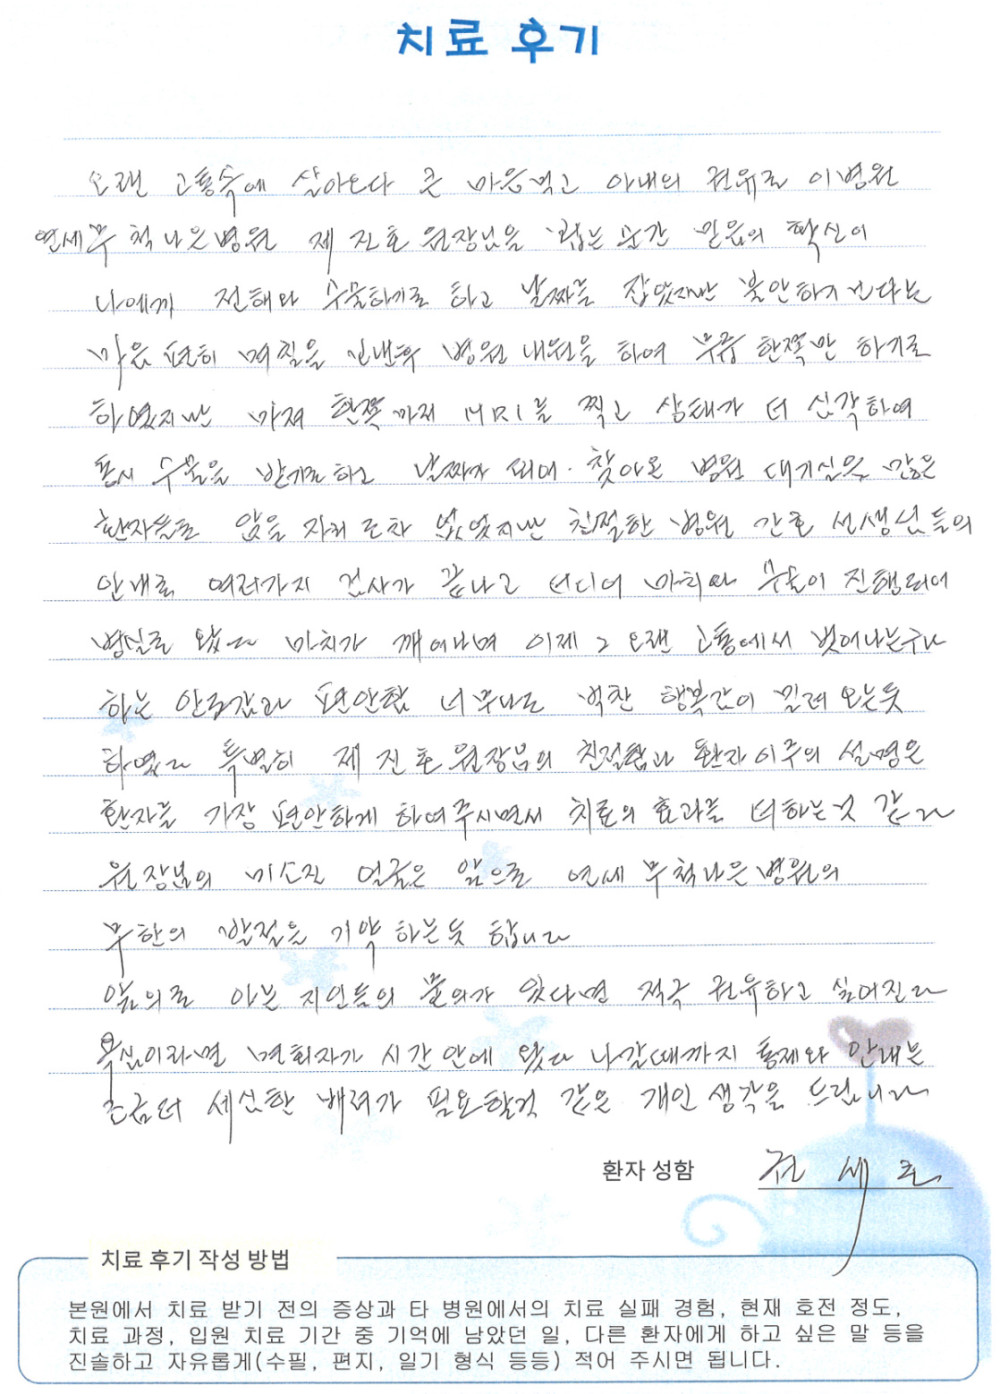 치료 후기
오랜 고통속에 살아오다 큰 마음먹고 아내의 권유로 이병원
연세무척나은병원 제진호 원장님을 뵙는 순간 믿음의 확신이
나에게 전해와 수술하기로 하고 날짜를 잡았지만 불안하기 보다는
마음 편히 며칠을 보낸후 병원 내원을 하여 무릎 한쪽만 하기로
하였지만 마저 한쪽까지 MRI를 찍고 상태가 더 심각하여
동시 수술을 받기로하고 날짜가 되어. 찾아온 병원 대기실은 많은
환자들로 앉을 자리 조차 없었지만 친절한 병원 간호 선생님들의
안내로 여러가지 검사가 끝나고 드디어 마취와 수술이 진행되어
병실로 왔다 마취가 깨어나며 이제 그 오랜 고통에서 벗어나는구나
하는 안도감과 편안함 너무나도 벅찬 행복감이 밀려 오는듯
하였다 특별히 제진호 원장님의 친절함과 환자 위주의 설명은
환자를 가장 편안하게 하여주시면서 치료의 효과를 더하는것 같다
원장님의 미소진 얼굴은 앞으로 연세무척나은병원의
무한의 발전을 기약하는듯 합니다
앞의로 아는 지인들의 문의가 있다면 적극 권유하고 싶어진다
욕심이라면 면회자가 시간 안에 왔다 나갈때까지 통제와 안내는
조금더 세심한 배려가 필요할것 같은 개인 생각을 드립니다
환자 성함 권세호
치료 후기 작성 방법
본원에서 치료 받기 전의 증상과 타 병원에서의 치료 실패 경험, 현재 호전 정도,
치료 과정, 입원 치료 기간 중 기억에 남았던 일, 다른 환자에게 하고 싶은 말 등을
진솔하고 자유롭게(수필, 편지, 일기 형식 등등) 적어 주시면 됩니다.